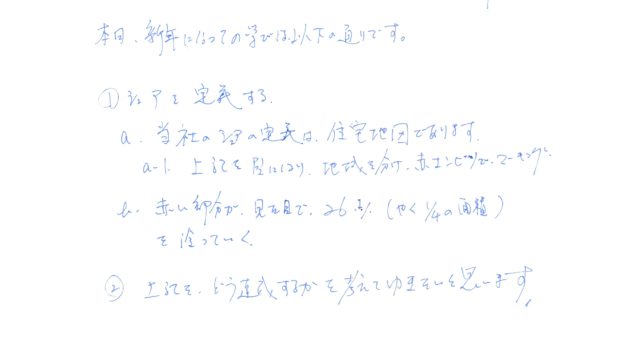 本日、新年になっての学びは以下の通りです。
① シェアを定義する.
a. 当社のシェアの定義は、住宅地図であります.
a-1. 上記を 基により、地域を分け、赤エンピツで、マーキング.
b. 赤い部分が、見た目で、26%(やく 1/4の面積)
を塗っていく.
② 上記を、どう達成するかを考えてゆきたいと思います,